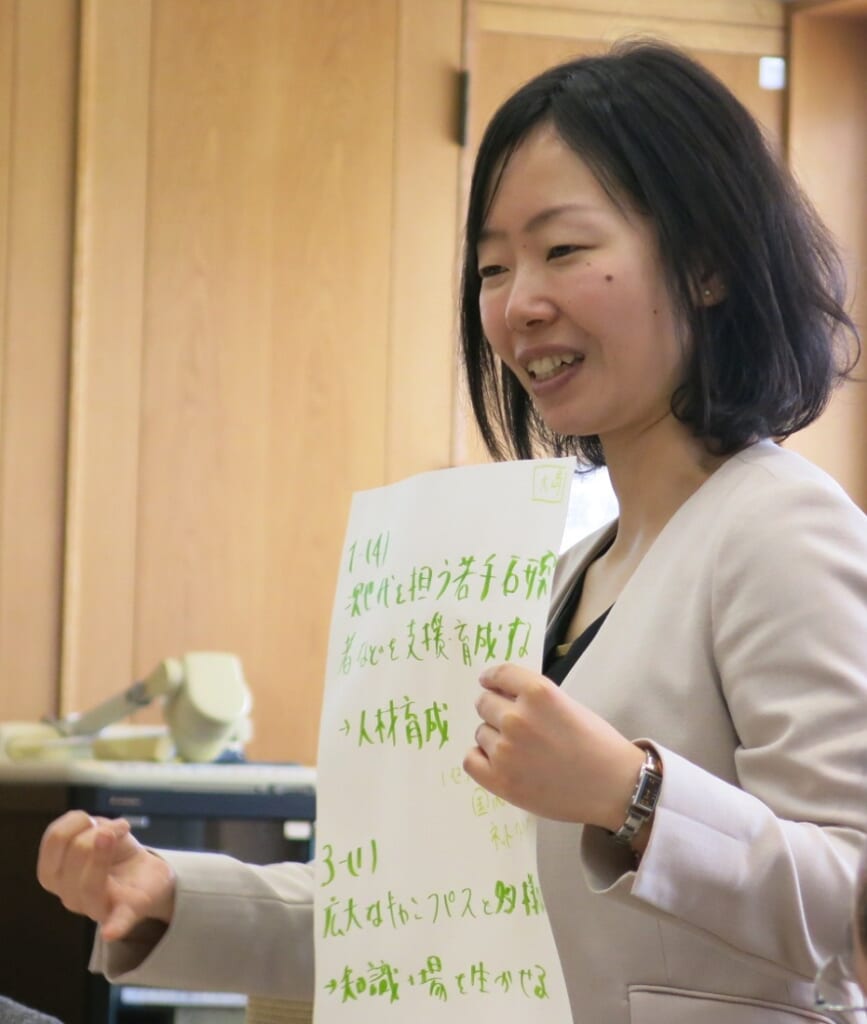 大崎
1-(4)
次世代を担う若手研究
者などを支援・育成する
→人材育成
3-(1)
広大なキャンパスと多様
→知識・場を生かせる